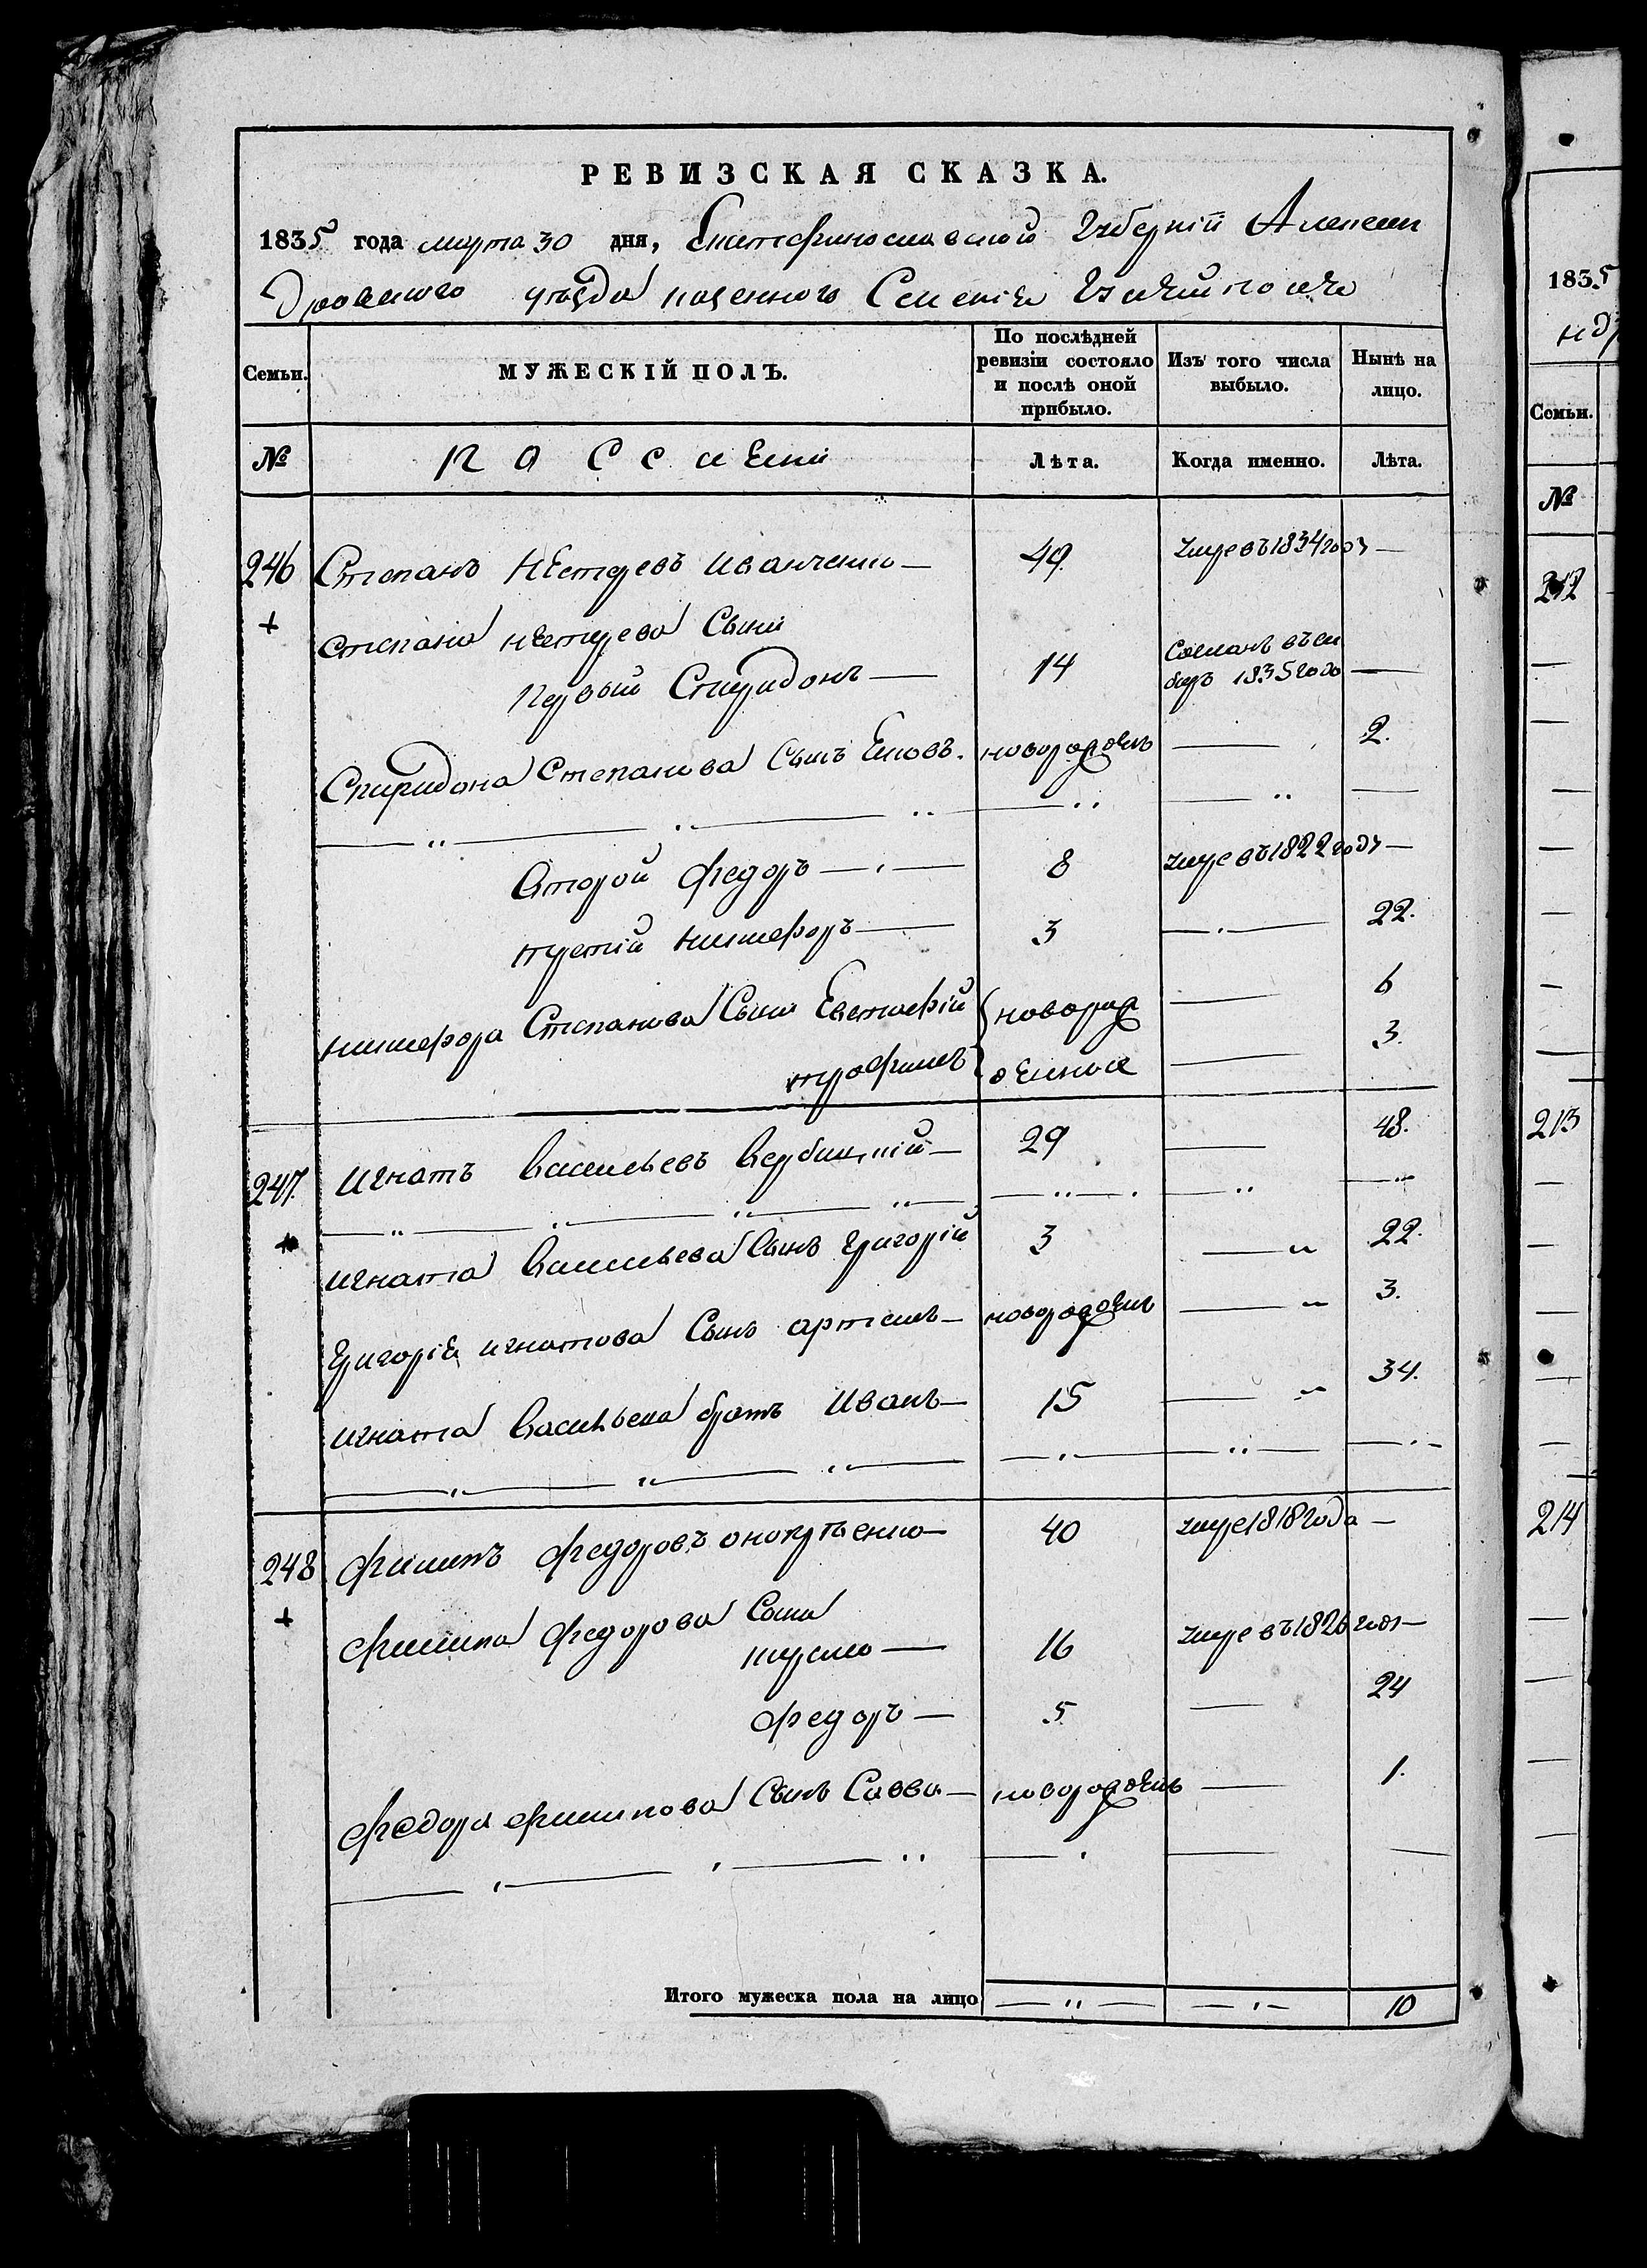 РЕВИЗСКАЯ СКАЗКА.
1835 года марта 30 дня, Екатеринославской Губернiй Алексан
Дровского уѣзда казенного Селенiя
Семьи. МУЖЕСКIЙ ПОЛЪ. По послѣдней ревизiи состояло и послѣ оной прибыло. Изъ того числа выбыло. Нынѣ на лицо.
№ Лѣта. Когда именно. Лѣта.
246 Степанъ Нестеревъ Иванченко — 49. умре въ 1834 году —
+ Степана Нестерева Сыни
первый Спиридонъ — 14 1835 года —
Спиридона Степанова Сынъ Яковъ. новорожденъ — 2.
Второй Федоръ — 8 умре въ 1822 году —
третiй Никифоръ — 3 — 22.
Никифора Степанова Сыни Евстафiй новорож — 6
трофимъ денные — 3.
247. Игнатъ Васильевъ Вербицкiй — 29 — 48.
Игната Васильева Сынъ Григорiй 3 — 22.
Григорiя игнатова Сынъ артемъ — новорожденъ — 3.
игната Васильева братъ Иванъ — 15 — 34.
248 Филипъ Федоровъ — 40 умре 1818 года —
+ Филипа Федорова Сыни
16 умре въ 1826 году —
Федоръ — 5 — 24
Федора Филипова Сынъ Савва — новорожденъ — 1.
Итого мужеска пола на лицо 10
1835
Семьи.
№
212
213
214